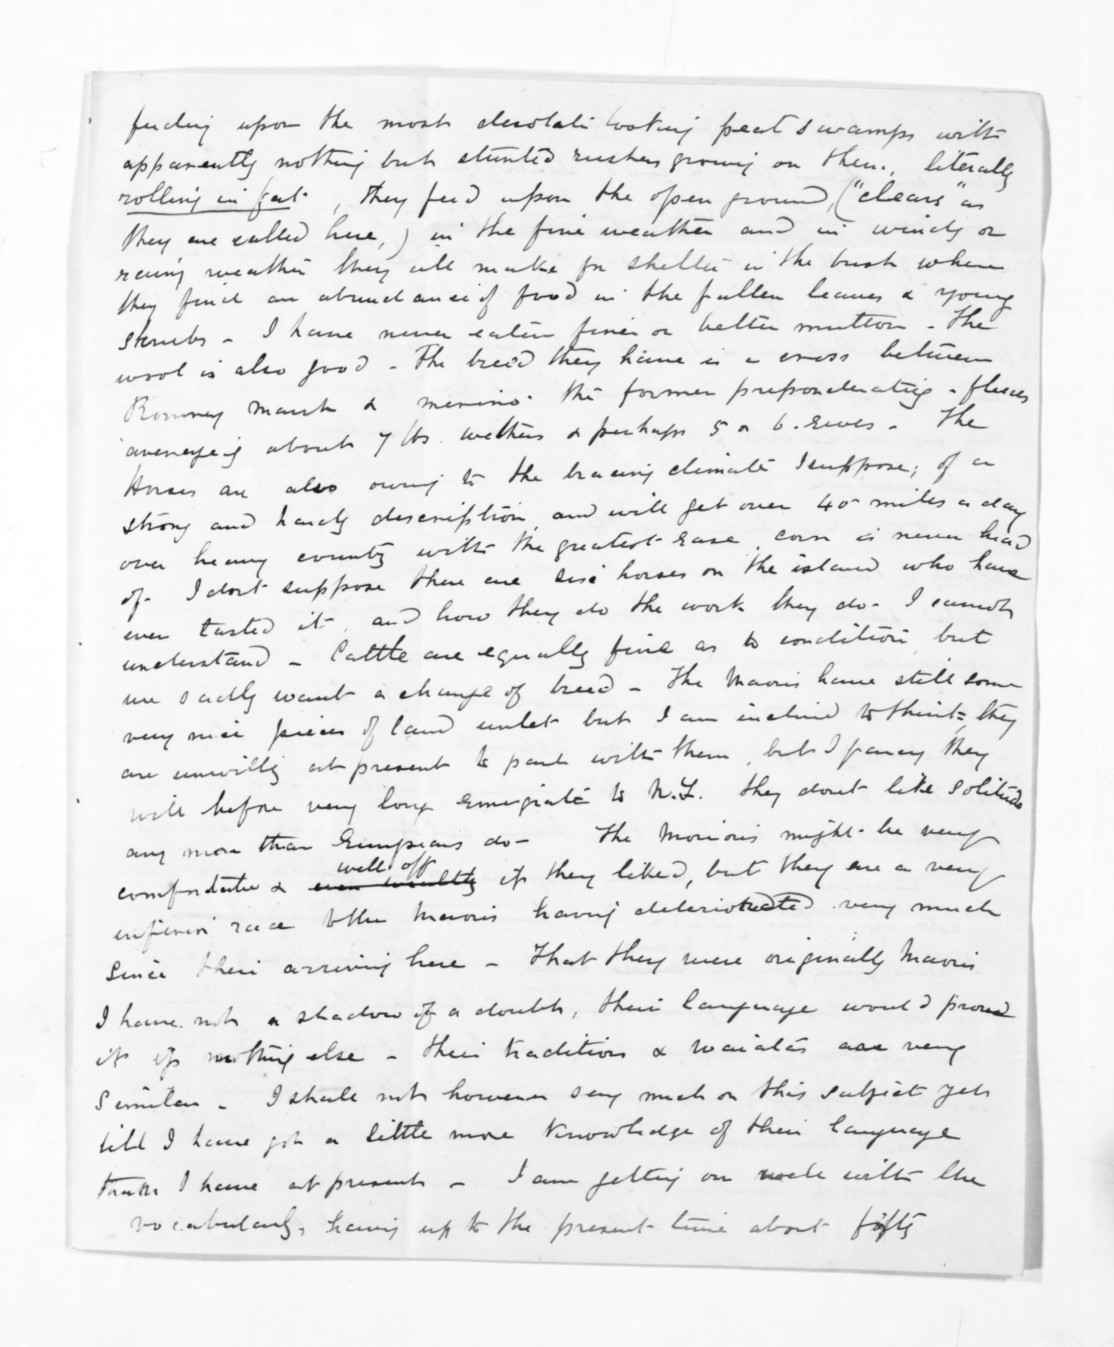 feeding upon the most desolate looking peat swamps with
apparently nothing but stunted rushes growing on them, literally
rolling in fat, they feed upon the open ground, ("clears" as
they are called here,) in the fine weather and in windy or
rainy weather they all make for shelter in the bush where
they find an abundance of food in the fallen leaves & young
shrubs - I have never eaten finer or better mutton - The
wool is also good - The breed they have is a cross between
Romney marsh & merino. the former preponderating - fleeces
averageing about 7 lbs. wethers & perhaps 5 or 6. Ewes - The
Horses are also owing to the bracing climate I suppose, of a
strong and hardy description, and will get over 40 miles a day
over heavy country with the greatest ease, corn is never heard
of - I dont suppose there are six horses on the island who have
ever tasted it, and how they do the work they do - I cannot
understand - Cattle are equally fine as to condition, but
we sadly want a change of breed - The Maoris have still some
very nice pieces of land unlet but I am inclined to think they
are unwillig at present to part with them, but I fancy they
will before very long emigrate to N.Z. they dont like solitude
any more than Europeans do - The Morioris might be very
comfortable & well off if they liked, but they are a very
inferior race to the Maoris having deteriorated very much
since their arriving here - That they were originally Maoris
I have not a shadow of a doubt, their language would prove
it if nothing else - their traditions & waiatas are very
similar - I shall not however say much on this subject yet
till I have got a little more knowledge of their language
than I have at present - I am getting on well with the
vocabulary, having up to the present time about fifty